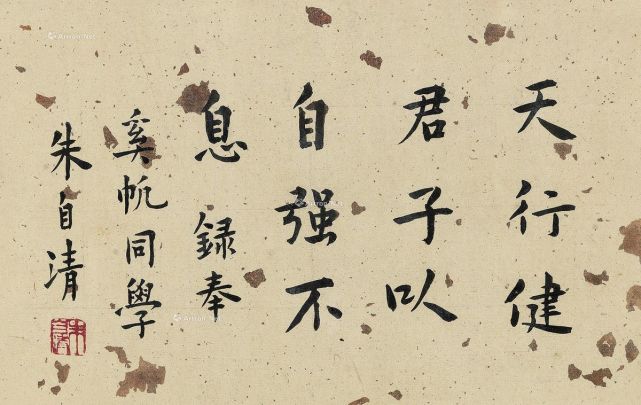 天行健
君子以
自强不
息 録奉
奚帆同學
朱自清
Artron.Net